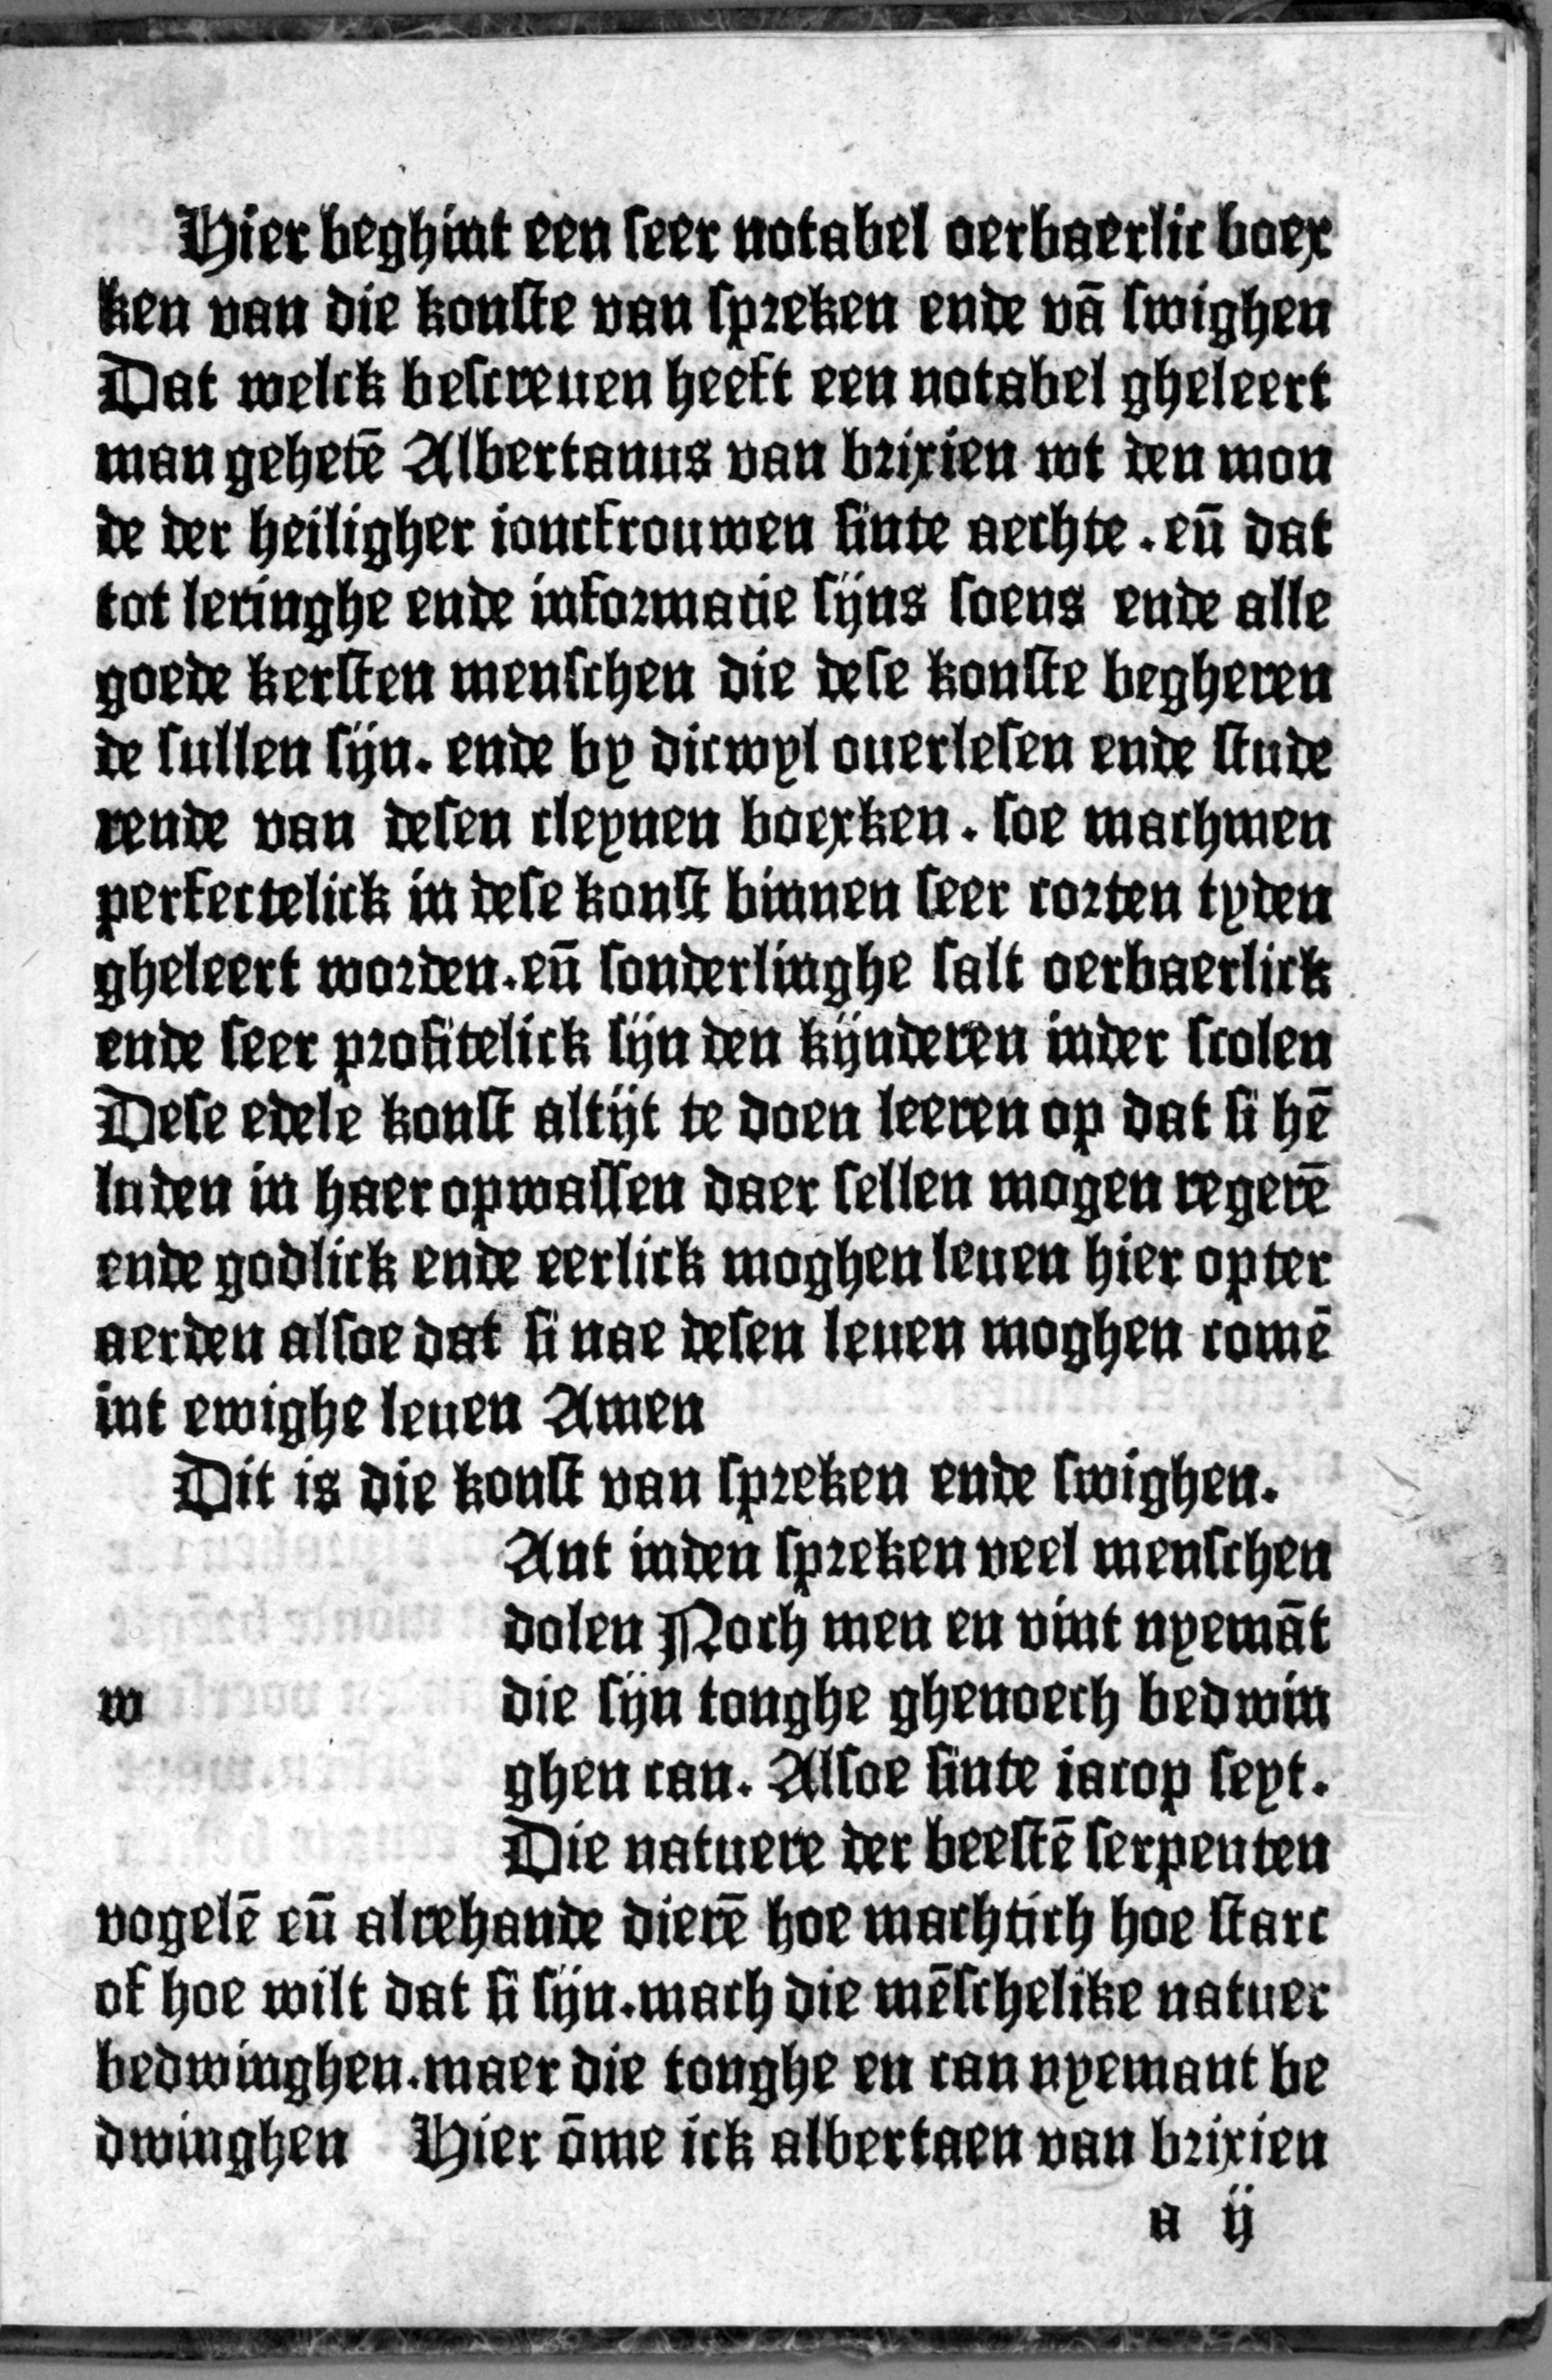 Hier beghint een seer notabel oerbaerlic boex
ken van die konste van spreken ende vā swighen
Dat welck bescreuen heeft een notabel gheleert
man gehetē Albertanus van brixien wt den mon
de der heiligher ionckfrouwen sinte aechte. eñ dat
tot leringhe ende informacie sijns soens ende alle
goede kersten menschen die dese konste begheren
de sullen sijn. ende by dicwyl ouerlesen ende stude
rende van desen cleynen boexken. soe machmen
perfectelick in dese konst binnen seer corten tyden
gheleert worden. eñ sonderlinghe salt oerbaerlick
ende seer profitelick sijn den kijnderen inder scolen
Dese edele konst altijt te doen leeren op dat si hē
luden in haer opwassen daer sellen mogen regerē
ende godlick ende eerlick moghen leuen hier opter
aerden alsoe dat si nae desen leuen moghen comē
int ewighe leuen Amen
Dit is die konst van spreken ende swighen.
Ant inden spreken veel menschen
dolen Noch men en vint nyemāt
w die sijn tonghe ghenoech bedwin
ghen can. Alsoe sinte iacop seyt.
Die natuere der beestē serpenten
vogelē eñ alrehande dierē hoe machtich hoe starc
of hoe wilt dat si sijn. mach die mēschelike natuer
bedwinghen. maer die tonghe en can nyemant be
dwinghen Hier ōme ick albertaen van brixien
a ij